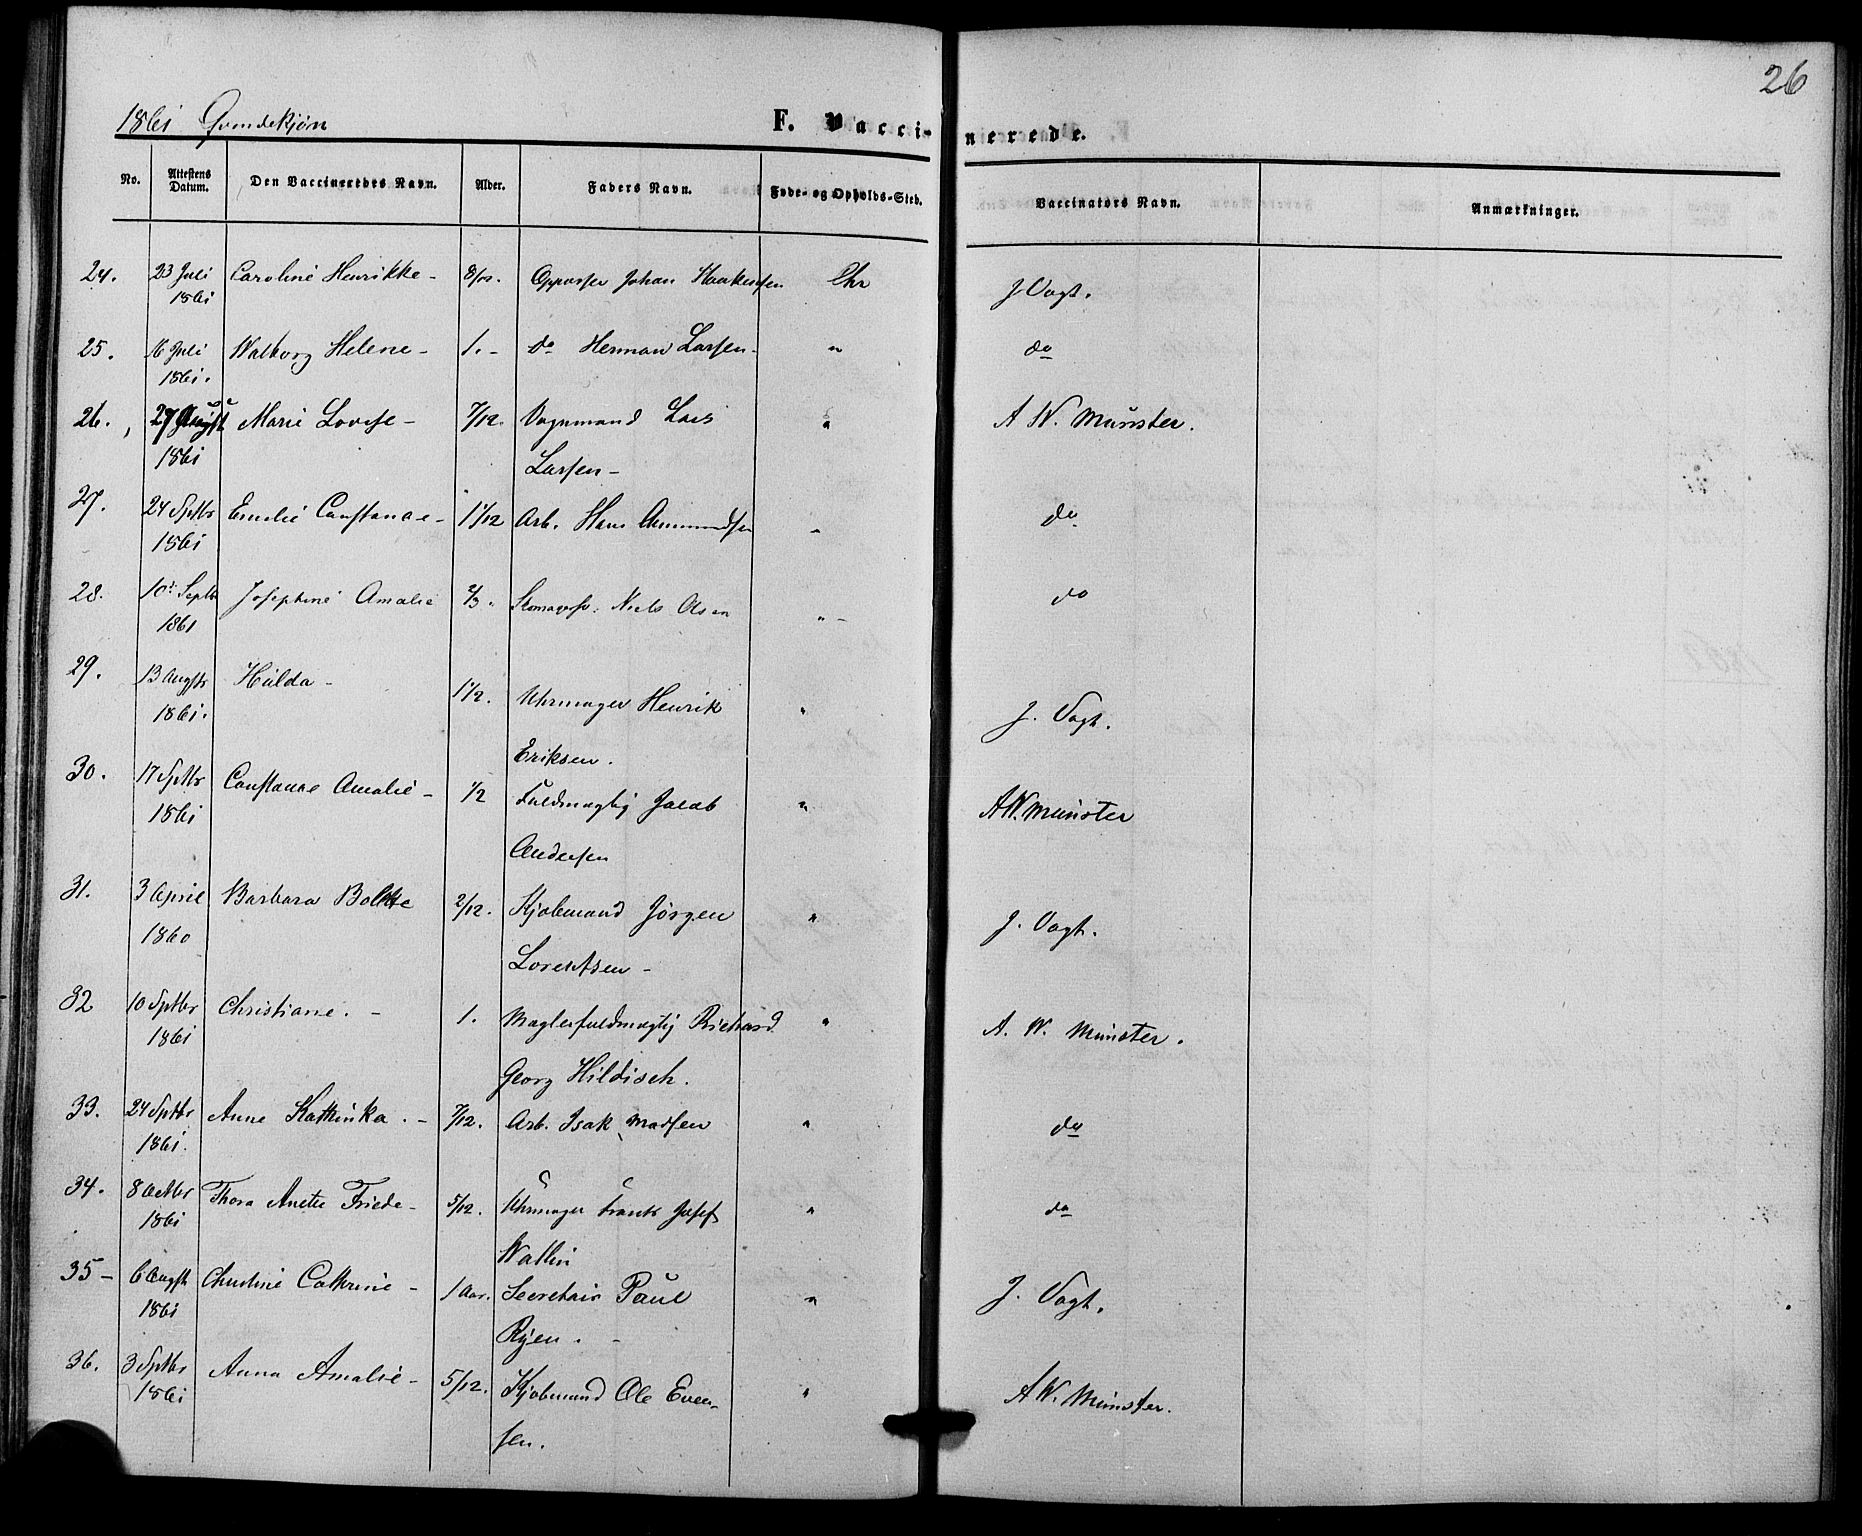 26
1861 Qvindekjøn
F. Vaccinerede.
No. Attestens Datum. Den Vaccineredes Navn. Alder. Faders Navn. Føde- og Opholds-Sted. Vaccinators Navn. Anmærkninger.
24. 23 Juli Caroline Henrikke - 8/12. Oppasser Johan Haakensen Chr J Vogt.
1861
25. 16 Juli Walborg Helene - 1. - do Herman Larsen - " do
1861.
26. 27 August Marie Lovise - 7/12. Vognmand Lars " A W. Münster.
1861 Larsen -
27. 24 Sptbr Emelie Constance - 1 1/12 Arb. Hans Ammundsen " do
1861
28. 10de Septbr Josephine Amalie 2/3. Skomagers. Niels Olsen " - do
1861
29. 13 Augstr Hulda - 1 1/2. Uhrmager Henrik " J. Vogt.
1861. Eriksen.
30. 17 Sptbr Constance Amalie - 1/2 Fuldmægtig Jacob " A W. Münster
1861 Andersen
31. 3 April Barbara Bolette 2/12. Kjøbmand Jørgen " J. Vogt.
1860 Lorentsen -
32 10 Sptbr Christiane. - 1. Mæglerfuldmægtig Richard " A. W. Münster.
1861 Georg Hildisch.
33. 24 Sptbr Anne Kathinka. - 7/12. Arb. Isak Madsen " do
1861.
34. 8 Octbr Thora Anette Friede - 5/12. Uhrmager Frants Josef " do
1861 Wallin
35 - 6 Augst Christine Cathrine - 1 Aar. Secretair Paul " J. Vogt.
1861 Ryen. -
36. 3 Sptbr Anna Amalie - 5/12. Kjøbmand Ole Even- " A W. Münster.
1861 sen.